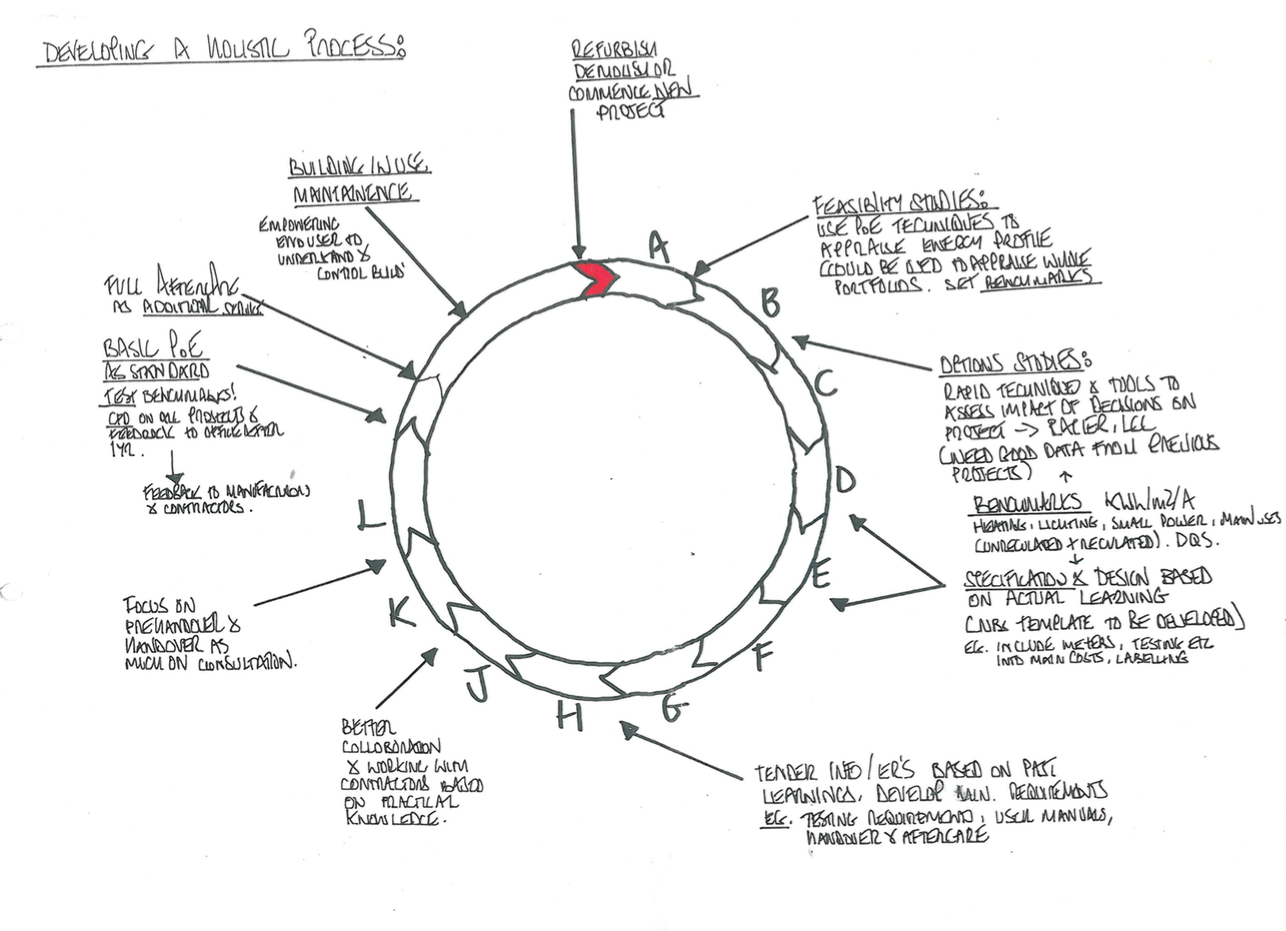 DEVELOPING A HOLISTIC PROCESS:
REFURBISH
DEMOLISH OR
COMMENCE NEW
PROJECT
BUILDING IN USE
MAINTAINENCE
EMPOWERING
END USER TO
UNDERSTAND &
CONTROL BUILD'
FULL AFTERCARE
AS ADDITIONAL SERVICE
BASIC PoE
AS STANDARD
TEST BENCHMARKS!
CPD ON ALL PROJECTS &
FEEDBACK TO OFFICE AFTER
1YR.
FEEDBACK TO MANUFACTURERS
& CONTRACTORS.
FOCUS ON
PREHANDOVER &
HANDOVER AS
MUCH ON CONSULTATION.
BETTER
COLLOBORATION
& WORKING WITH
CONTRACTORS BASED
ON PRACTICAL
KNOWLEDGE.
A
B
C
D
E
F
G
H
J
K
L
FEASIBLITY STUDIES:
USE PoE TECHNIQUES TO
APPRAISE ENERGY PROFILE
COULD BE USED TO APPRAISE WHOLE
PORTFOLIOS. SET BENCHMARKS
OPTIONS STUDIES:
RAPID TECHNIQUES & TOOLS TO
ASSESS IMPACT OF DECISIONS ON
PROJECT → LCC
(NEED GOOD DATA FROM PREVIOUS
PROJECTS)
BENCHMARKS KWh/m2/A
HEATING, LIGHTING, SMALL POWER, MAIN USES
(UNREGULATED & REGULATED). DQS.
SPECIFICATION & DESIGN BASED
ON ACTUAL LEARNING
(NBS TEMPLATE TO BE DEVELOPED)
EG. INCLUDE METERS, TESTING ETC
INTO MAIN COSTS, LABELLING
TENDER INFO/ER'S BASED ON PAST
LEARNINGS, DEVELOP MIN. REQUIREMENTS
EG. TESTING REQUIREMENTS, USER MANUALS,
HANDOVER & AFTERCARE